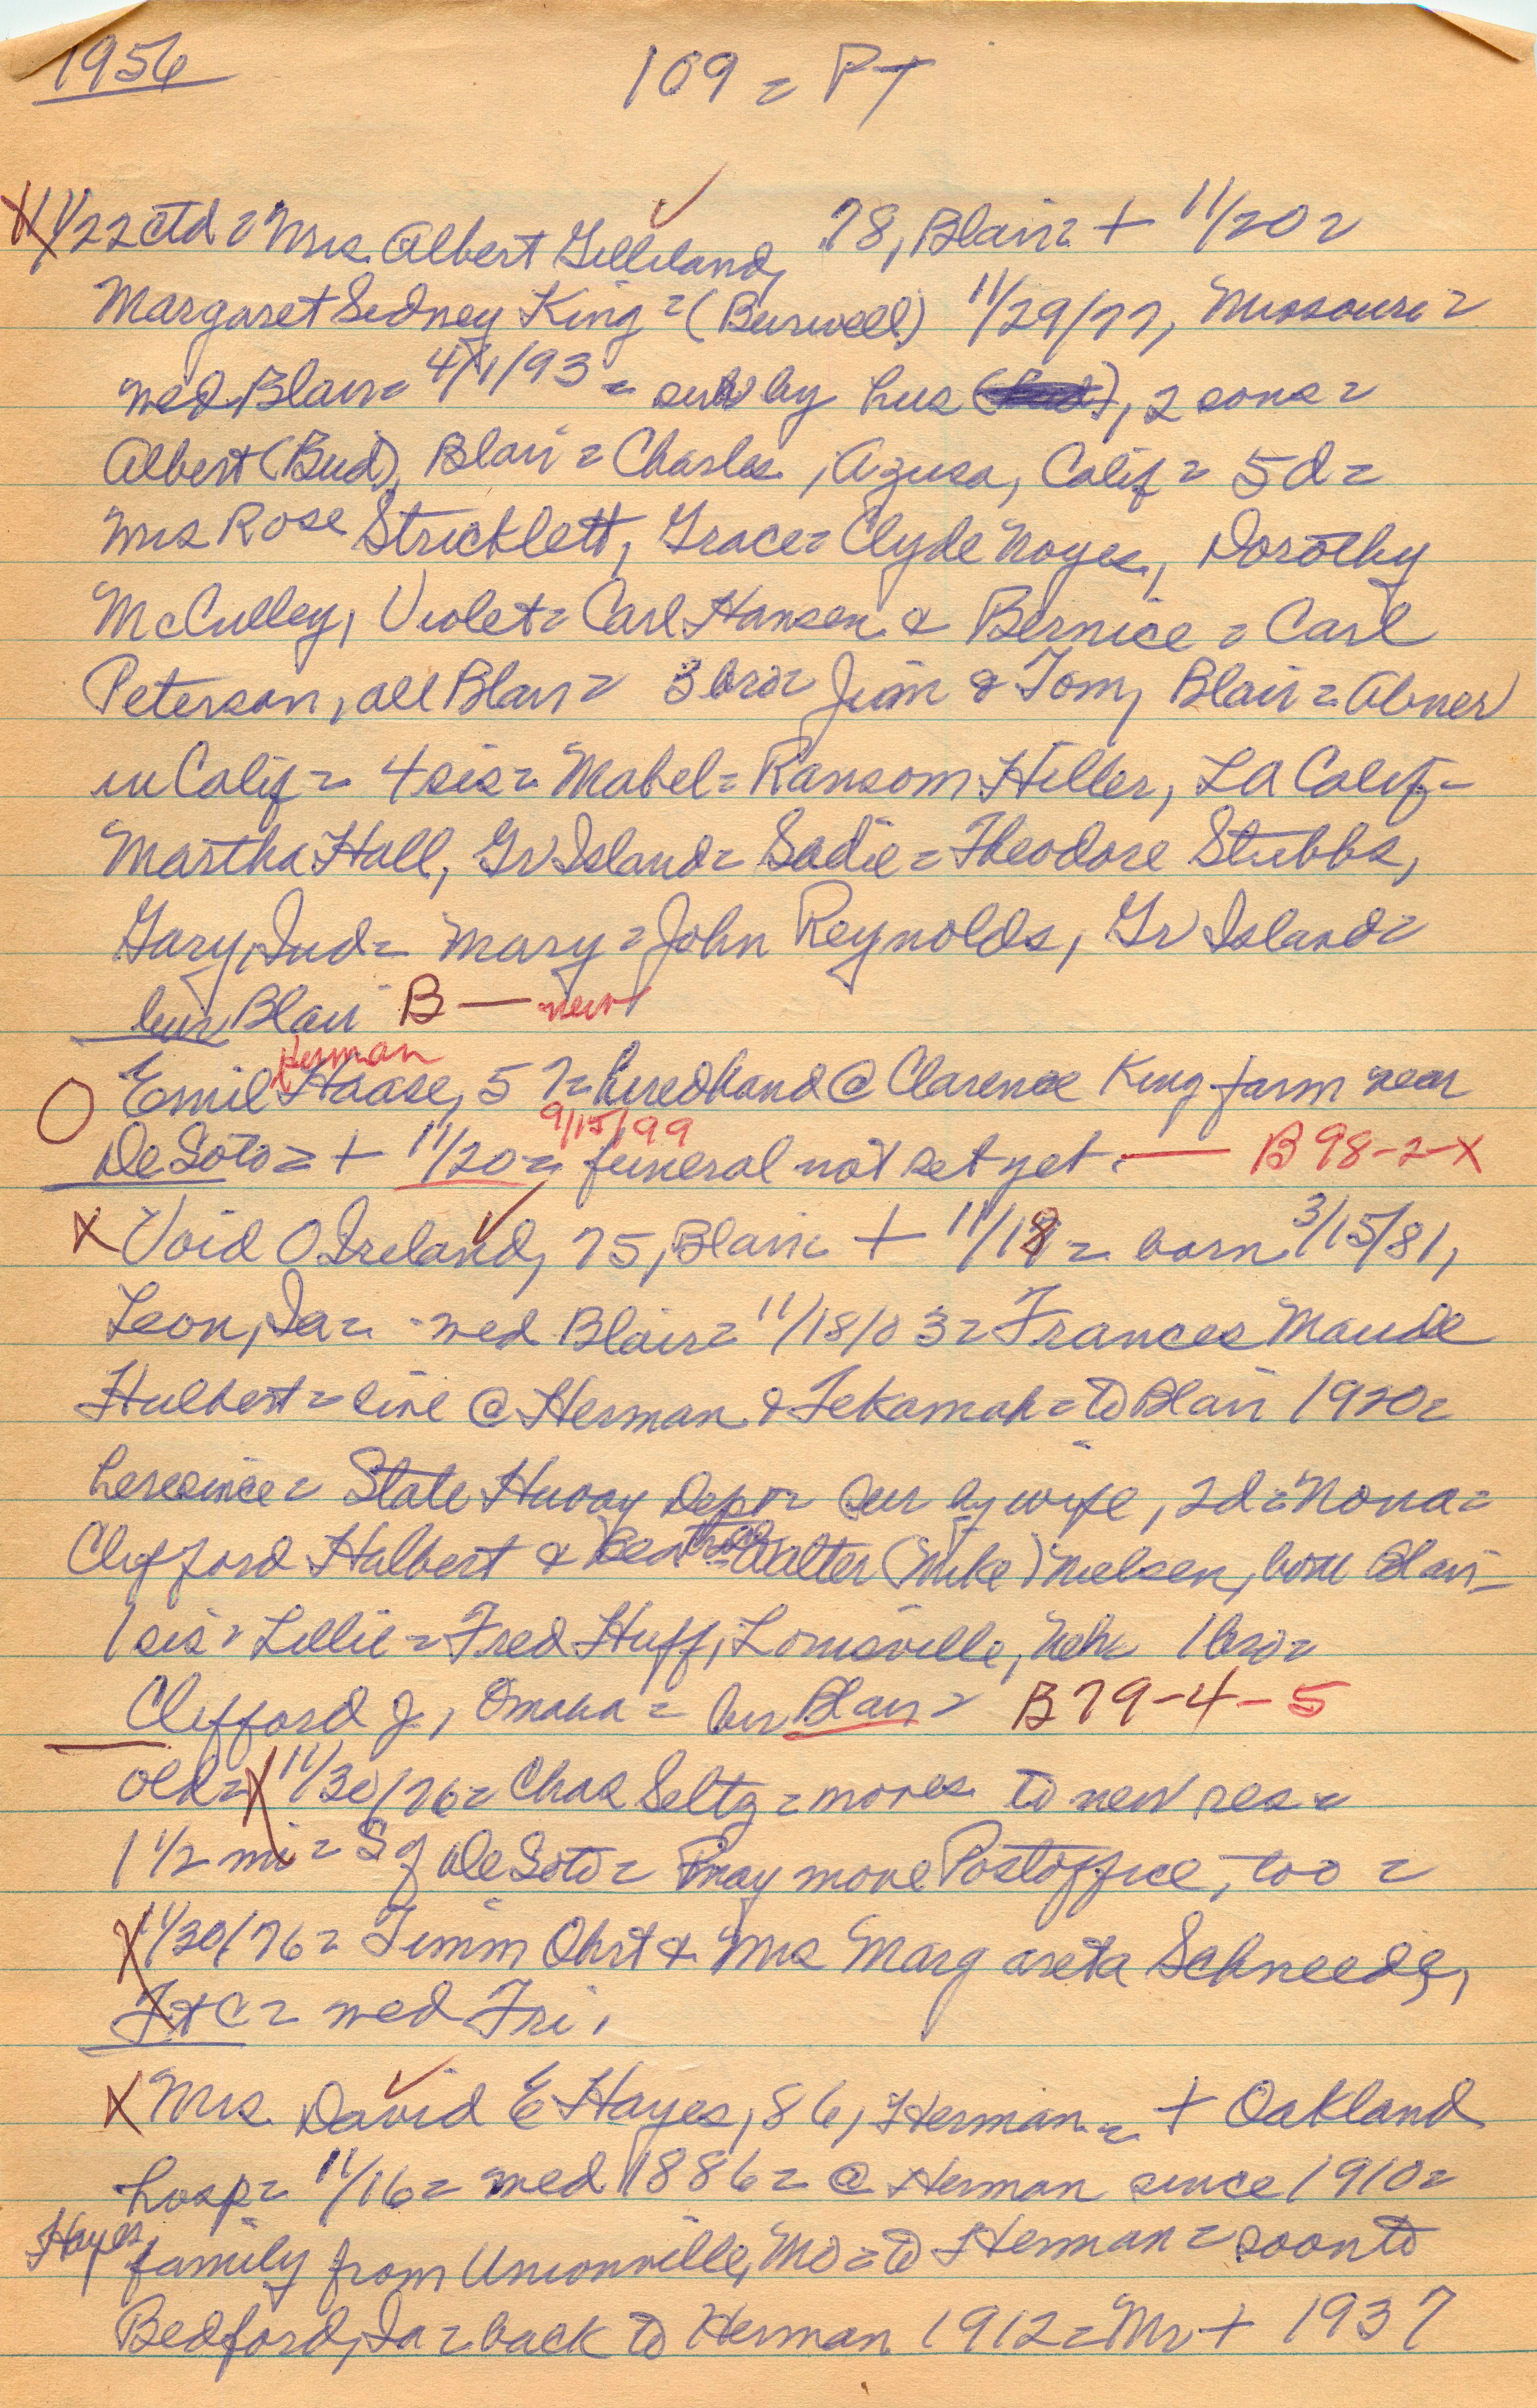 1956
109 = PT
11/22 ctd = Mrs. Albert Gilliland, 78, Blair = + 11/20 =
Margaret Sidney King = (Burwell) 11/29/77, Missouri =
wed Blair = 4/1/93 = surv by hus, 2 sons =
Albert (Bud), Blair = Charles, Azusa, Calif = 5d =
Mrs Rose Stricklett, Grace = Clyde Noyes, Dorothy
McCulley, Violet = Carl Hansen & Bernice = Carl
Peterson, all Blair = 3 bro = Jim & Tom, Blair = Abner
in Calif = 4 sis = Mabel = Ransom Hiller, LA Calif =
Martha Hall, Gr Island = Sadie = Theodore Stubbs,
Gary, Ind = Mary = John Reynolds, Gr Island =
bur Blair B — new
Herman
Emil Haase, 57 = hired hand @ Clarence King farm near
9/15/99
DeSoto = + 11/20 = funeral not set yet. — B 98-2-X
X Void O Ireland, 75, Blair + 11/18 = born 3/15/81,
Leon, Ia = wed Blair = 11/18/03 = Frances Maude
Hulbert = live @ Herman & Tekamah = to Blair 1920 =
here since = State Hiway Dept = sur by wife, 2d = Nona =
Clifford Halbert & Walter (Mike) Nielsen, both Blair =
1 sis = Lillie = Fred Huff, Louisville, Neb = 1 bro =
Clifford J, Omaha = bur Blair = B 79-4-5
Old = X 11/30/76 = Chas Seltz = moves to new res =
1 1/2 mi = S of DeSoto = may move Postoffice, too =
X 11/30/76 = Timm Ohrt & Mrs Margareta Schneede,
Ft C = wed Fri.
X Mrs. David E Hayes, 86, Herman = + Oakland
hosp = 11/16 = wed 1886 = @ Herman since 1910 =
Hayes family from Unionville, Mo = to Herman = soon to
Bedford, Ia = back to Herman 1912 = Mr + 1937